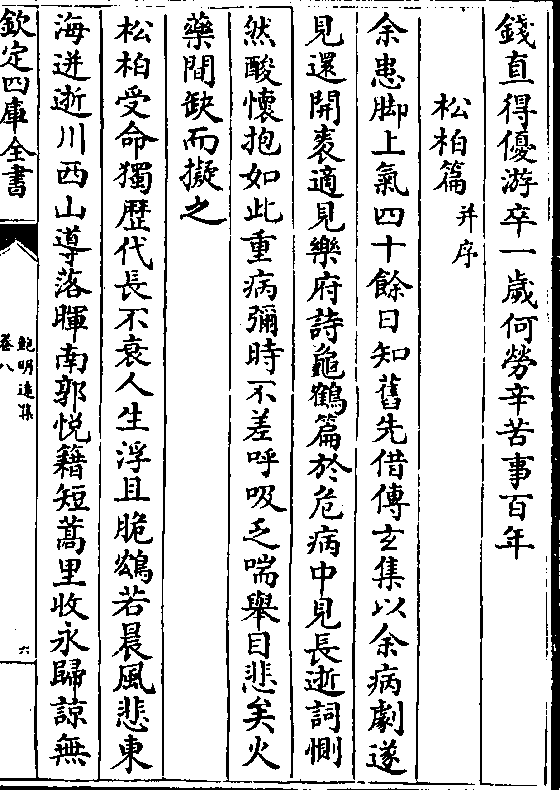 錢直得優游卒一歲何勞辛苦事百年
松柏篇并序
余患脚上氣四十餘日知舊先借傅玄集以余病劇遂
見還開袠適見樂府詩龜鶴篇於危病中見長逝詞惻
然酸懷抱如此重病彌時不差呼吸乏喘舉目悲矣火
藥間缺而擬之
松柏受命獨歷代長不衰人生浮且脆鴥若晨風悲東
海迸逝川西山導落暉南郭悦籍短蒿里收永歸諒無
欽定四庫全書
鮑明遠集
卷八
六